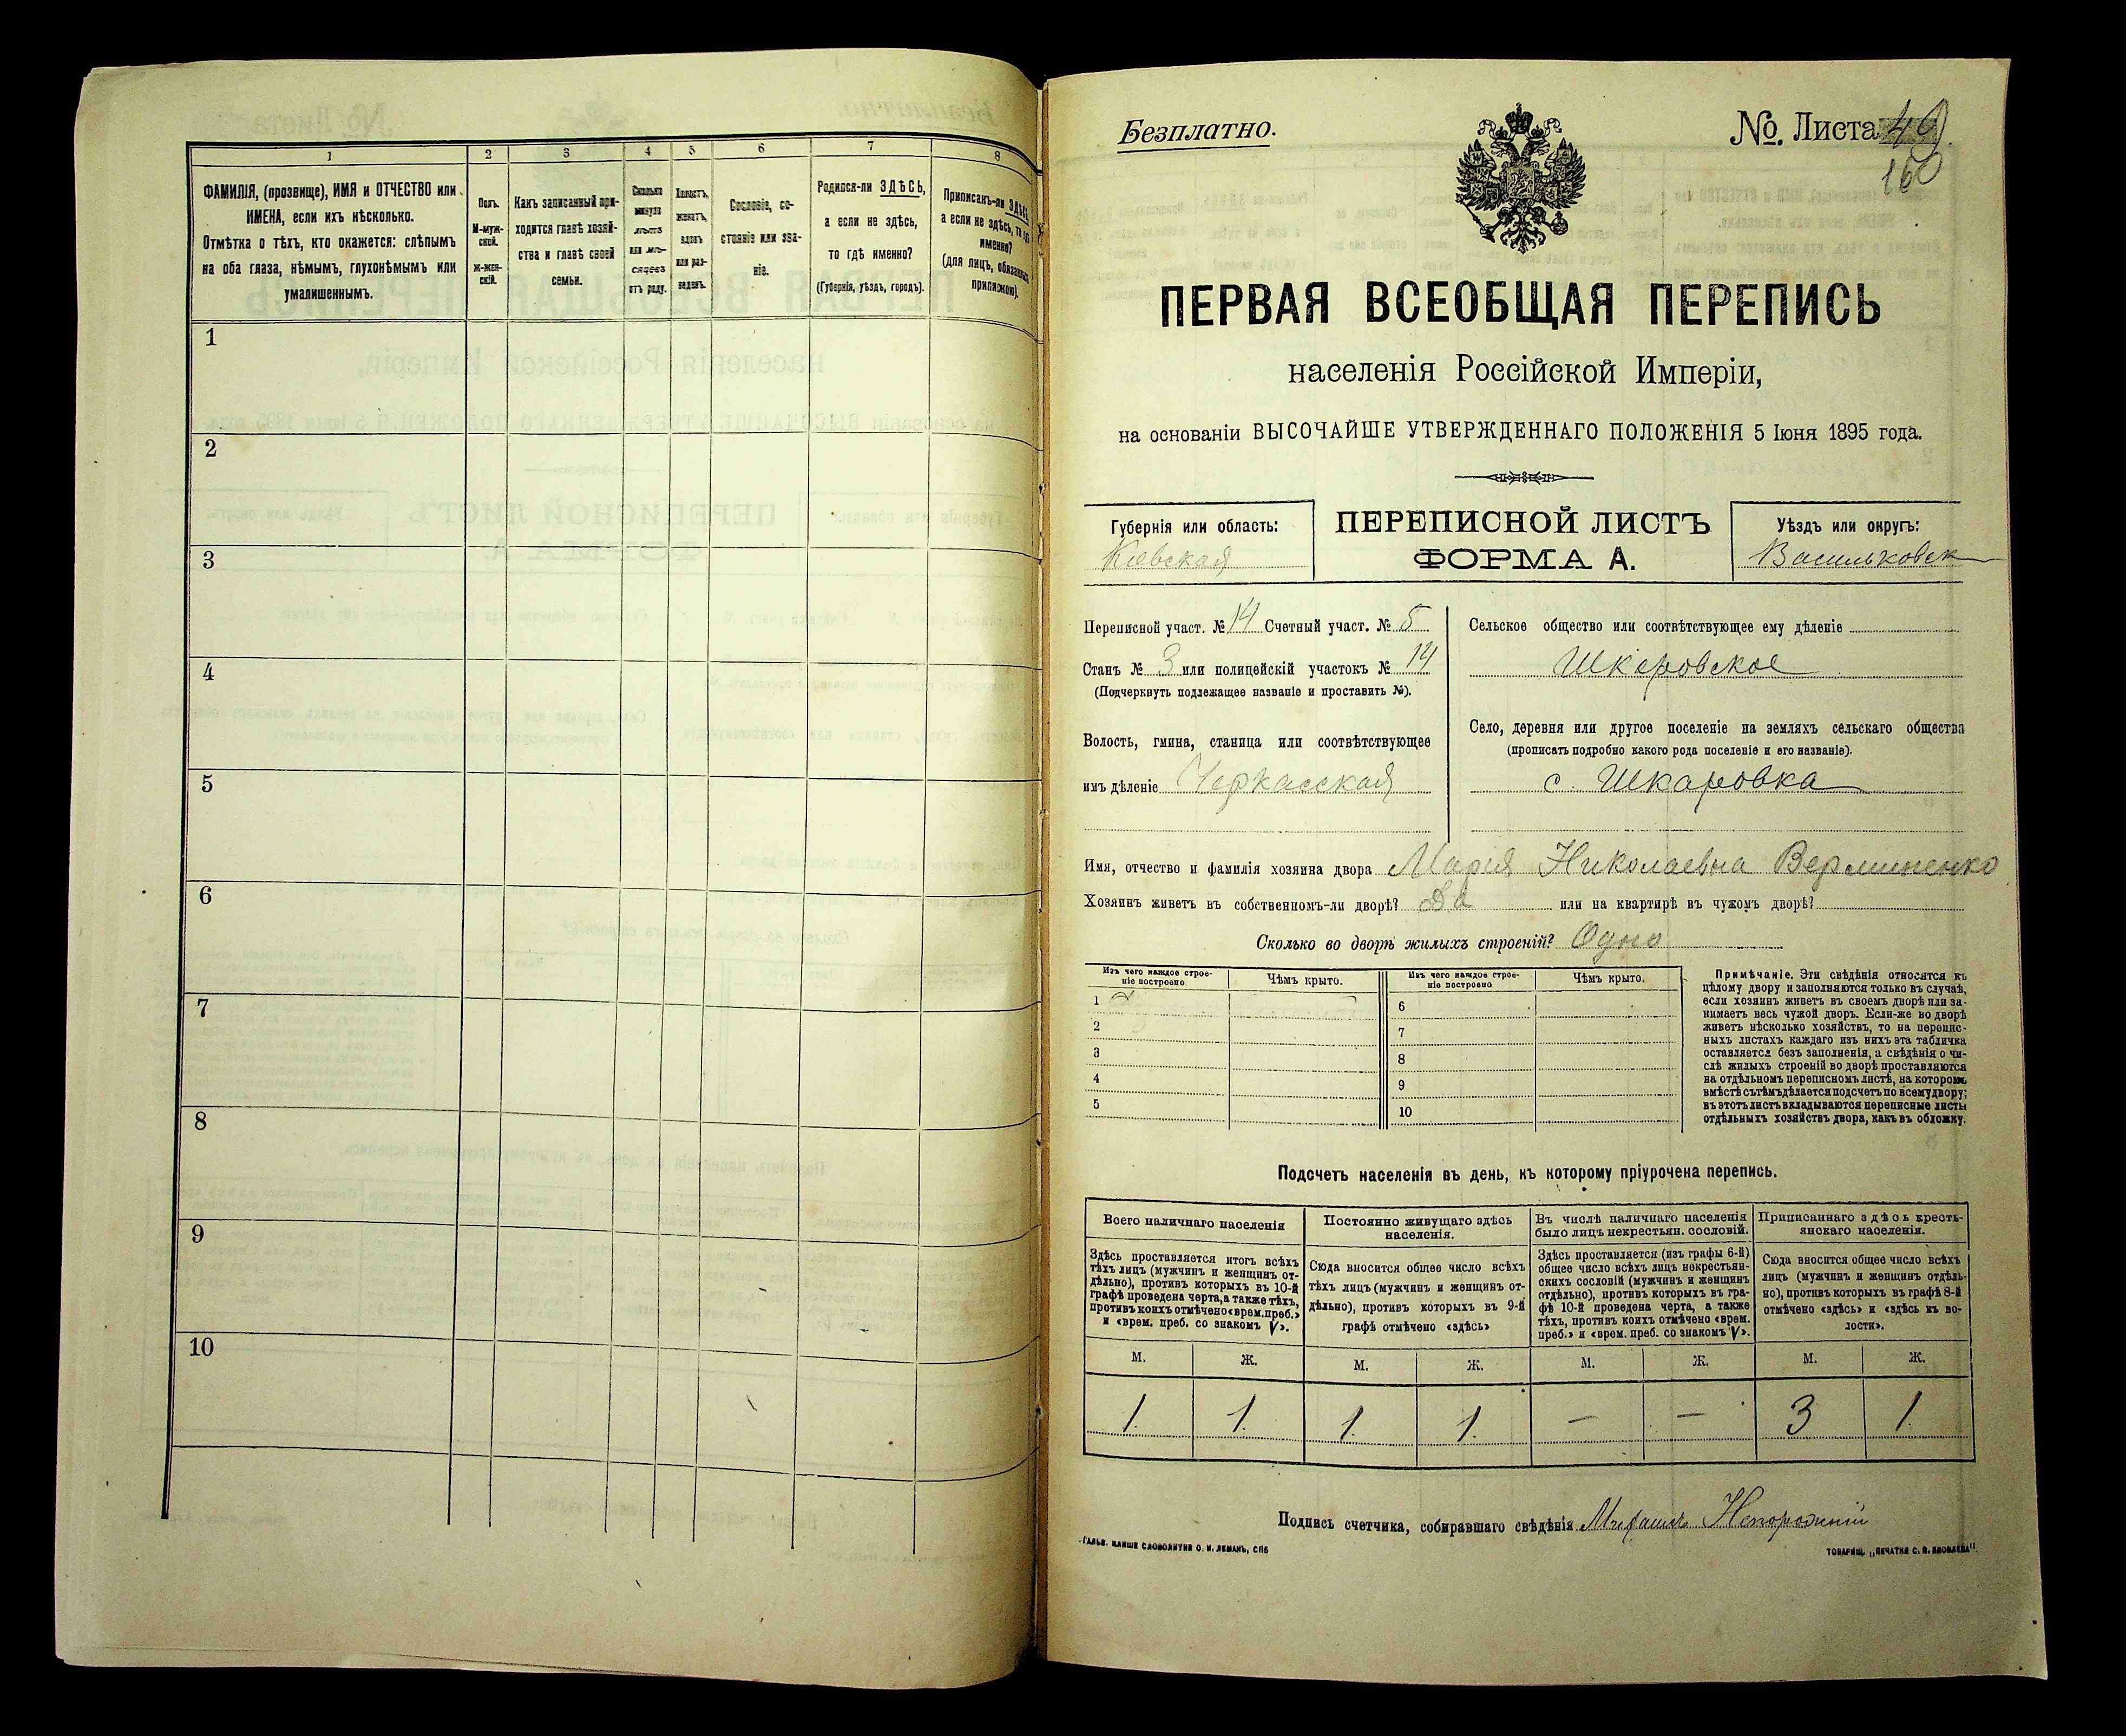 1 2 3 4 5 6 7 8
ФАМИЛІЯ, (прозвище), ИМЯ и ОТЧЕСТВО или
ИМЕНА, если ихъ нѣсколько.
Отмѣтка о тѣхъ, кто окажется: слѣпымъ
на оба глаза, нѣмымъ, глухонѣмымъ или
умалишеннымъ.
Полъ.
М-муж-
ской.
Ж-жен-
скій.
Какъ записанный при-
ходится главѣ хозяй-
ства и главѣ своей
семьи.
Сколько
минуло
лѣтъ
или мѣ-
сяцевъ
отъ роду.
Холостъ,
женатъ,
вдовъ
или раз-
веденъ.
Сословіе, со-
стояніе или зва-
ніе.
Родился-ли ЗДѢСЬ,
а если не здѣсь,
то гдѣ именно?
(Губернія, уѣздъ, городъ).
Приписанъ-ли ЗДѢСЬ,
а если не здѣсь, то гдѣ
именно?
(для лицъ, обязанныхъ
припискою).
1
2
3
4
5
6
7
8
9
10
Безплатно.
№. Листа 49
160
ПЕРВАЯ ВСЕОБЩАЯ ПЕРЕПИСЬ
населенія Россійской Имперіи,
на основаніи ВЫСОЧАЙШЕ УТВЕРЖДЕННАГО ПОЛОЖЕНІЯ 5 Іюня 1895 года.
Губернія или область:
Кіевская
ПЕРЕПИСНОЙ ЛИСТЪ
ФОРМА А.
Уѣздъ или округъ:
Васильковск
Переписной участ. № 14 Счетный участ. № 5
Станъ № 3 или полицейскій участокъ № 14
(Подчеркнуть подлежащее названіе и проставить №).
Волость, гмина, станица или соотвѣтствующее
имъ дѣленіе Черкасская
Сельское общество или соотвѣтствующее ему дѣленіе
Шкаровское
Село, деревня или другое поселеніе на земляхъ сельскаго общества
(прописать подробно какого рода поселеніе и его названіе).
с. Шкаровка
Имя, отчество и фамилія хозяина двора Марія Николаевна
Хозяинъ живетъ въ собственномъ-ли дворѣ? Да или на квартирѣ въ чужомъ дворѣ?
Сколько во дворѣ жилыхъ строеній? Одно
Изъ чего каждое строе-
ніе построено
Чѣмъ крыто.
Изъ чего каждое строе-
ніе построено
Чѣмъ крыто.
1
2
3
4
5
6
7
8
9
10
Примѣчаніе. Эти свѣдѣнія относятся къ
цѣлому двору и заполняются только въ случаѣ,
если хозяинъ живетъ въ своемъ дворѣ или за-
нимаетъ весь чужой дворъ. Если-же во дворѣ
живетъ нѣсколько хозяйствъ, то на перепис-
ныхъ листахъ каждаго изъ нихъ эта табличка
оставляется безъ заполненія, а свѣдѣнія о чи-
слѣ жилыхъ строеній во дворѣ проставляются
на отдѣльномъ переписномъ листѣ, на которомъ
вмѣстѣ съ тѣмъ дѣлается подсчетъ по всему двору;
въ этотъ листъ вкладываются переписные листы
отдѣльныхъ хозяйствъ двора, какъ въ обложку.
Подсчетъ населенія въ день, къ которому пріурочена перепись.
Всего наличнаго населенія
Здѣсь проставляется итогъ всѣхъ
тѣхъ лицъ (мужчинъ и женщинъ от-
дѣльно), противъ которыхъ въ 10-й
графѣ проведена черта, а также тѣхъ,
противъ коихъ отмѣчено «врем. преб.»
и «врем. преб. со знакомъ V».
Постоянно живущаго здѣсь
населенія.
Сюда вносится общее число всѣхъ
тѣхъ лицъ (мужчинъ и женщинъ от-
дѣльно), противъ которыхъ въ 9-й
графѣ отмѣчено «здѣсь»
Въ числѣ наличнаго населенія
было лицъ некрестьян. сословій.
Здѣсь проставляется (изъ графы 6-й)
общее число всѣхъ лицъ некрестьян-
скихъ сословій (мужчинъ и женщинъ
отдѣльно), противъ которыхъ въ гра-
фѣ 10-й проведена черта, а также
тѣхъ, противъ коихъ отмѣчено «врем.
преб.» и «врем. преб. со знакомъ V».
Приписаннаго здѣсь кресть-
янскаго населенія.
Сюда вносится общее число всѣхъ
лицъ (мужчинъ и женщинъ отдѣль-
но), противъ которыхъ въ графѣ 8-й
отмѣчено «здѣсь» и «здѣсь къ во-
лости».
М. Ж. М. Ж. М. Ж. М. Ж.
1. 1. 1. 1. — — 3 1.
Подпись счетчика, собиравшаго свѣдѣнія Непорожній
ГАЛЬВ. КЛИШЕ СЛОВОЛИТНИ О. И. ЛЕМАНЪ, СПБ
ТОВАРИЩ. „ПЕЧАТНЯ С. П. ЯКОВЛЕВА"